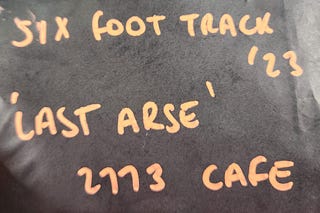 SIX FOOT TRACK
'23
'LAST ARSE'
2773 CAFE